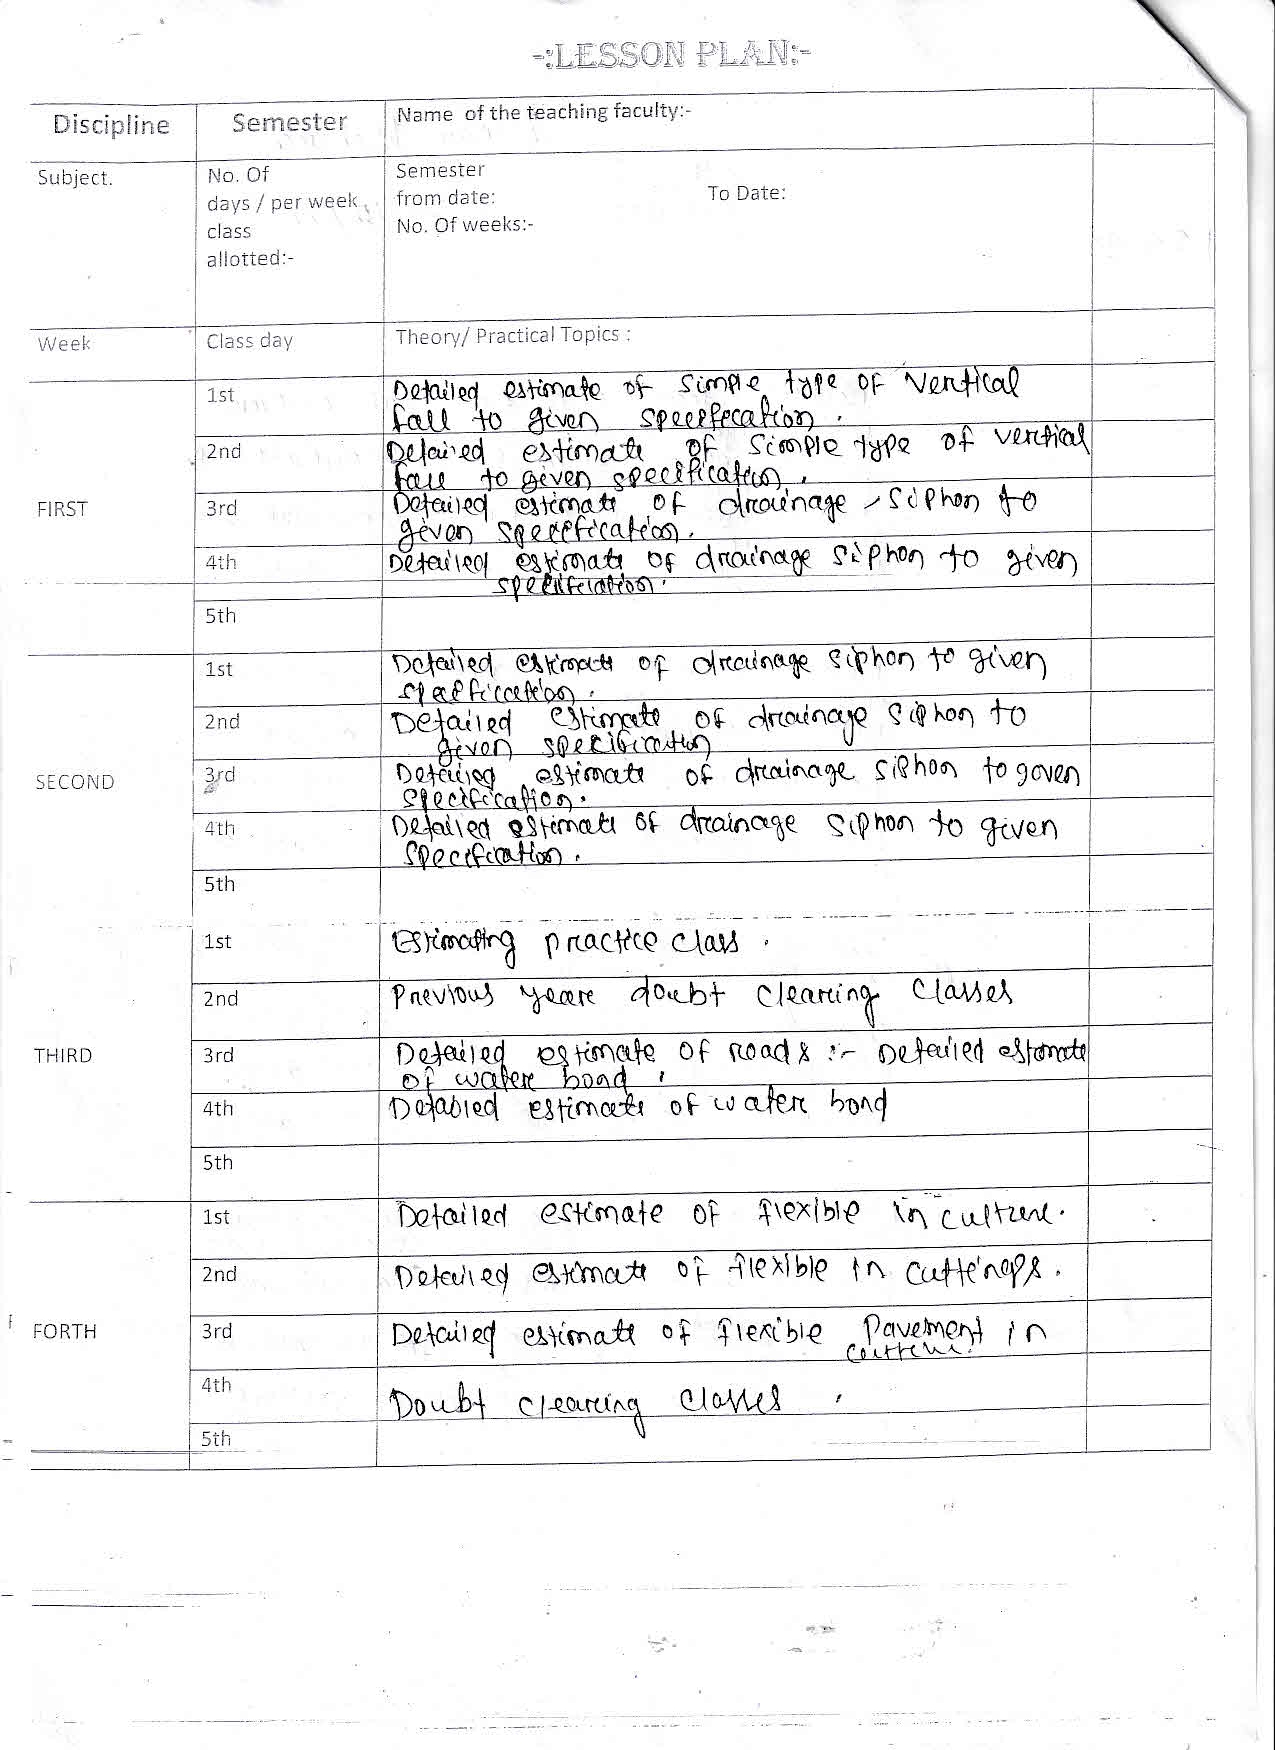 -:LESSON PLAN:-
Discipline
Semester
Name of the teaching faculty:-
Subject.
No. Of
days / per week
class
allotted:-
Semester
from date:
To Date:
No. Of weeks:-
Week
Class day
Theory/ Practical Topics :
FIRST
1st
Detailed estimate of simple type of vertical
fall to given specification.
2nd
Detailed estimate of simple type of vertical
fall to given specification.
3rd
Detailed estimate of drainage siphon to
given specification.
4th
Detailed estimate of drainage siphon to given
specification.
5th
SECOND
1st
Detailed estimate of drainage siphon to given
specification.
2nd
Detailed estimate of drainage siphon to
given specification
3rd
Detailed estimate of drainage siphon to goven
specification.
4th
Detailed estimate of drainage siphon to given
specification.
5th
THIRD
1st
Estimating practice class.
2nd
Previous yeare doubt clearing classes
3rd
Detailed estimate of roads :- Detailed estimate
of water bond.
4th
Detailed estimate of water bond
5th
FORTH
1st
Detailed estimate of flexible in
2nd
Detailed estimate of flexible in
3rd
Detailed estimate of flexible pavement in
4th
Doubt clearing classes.
5th